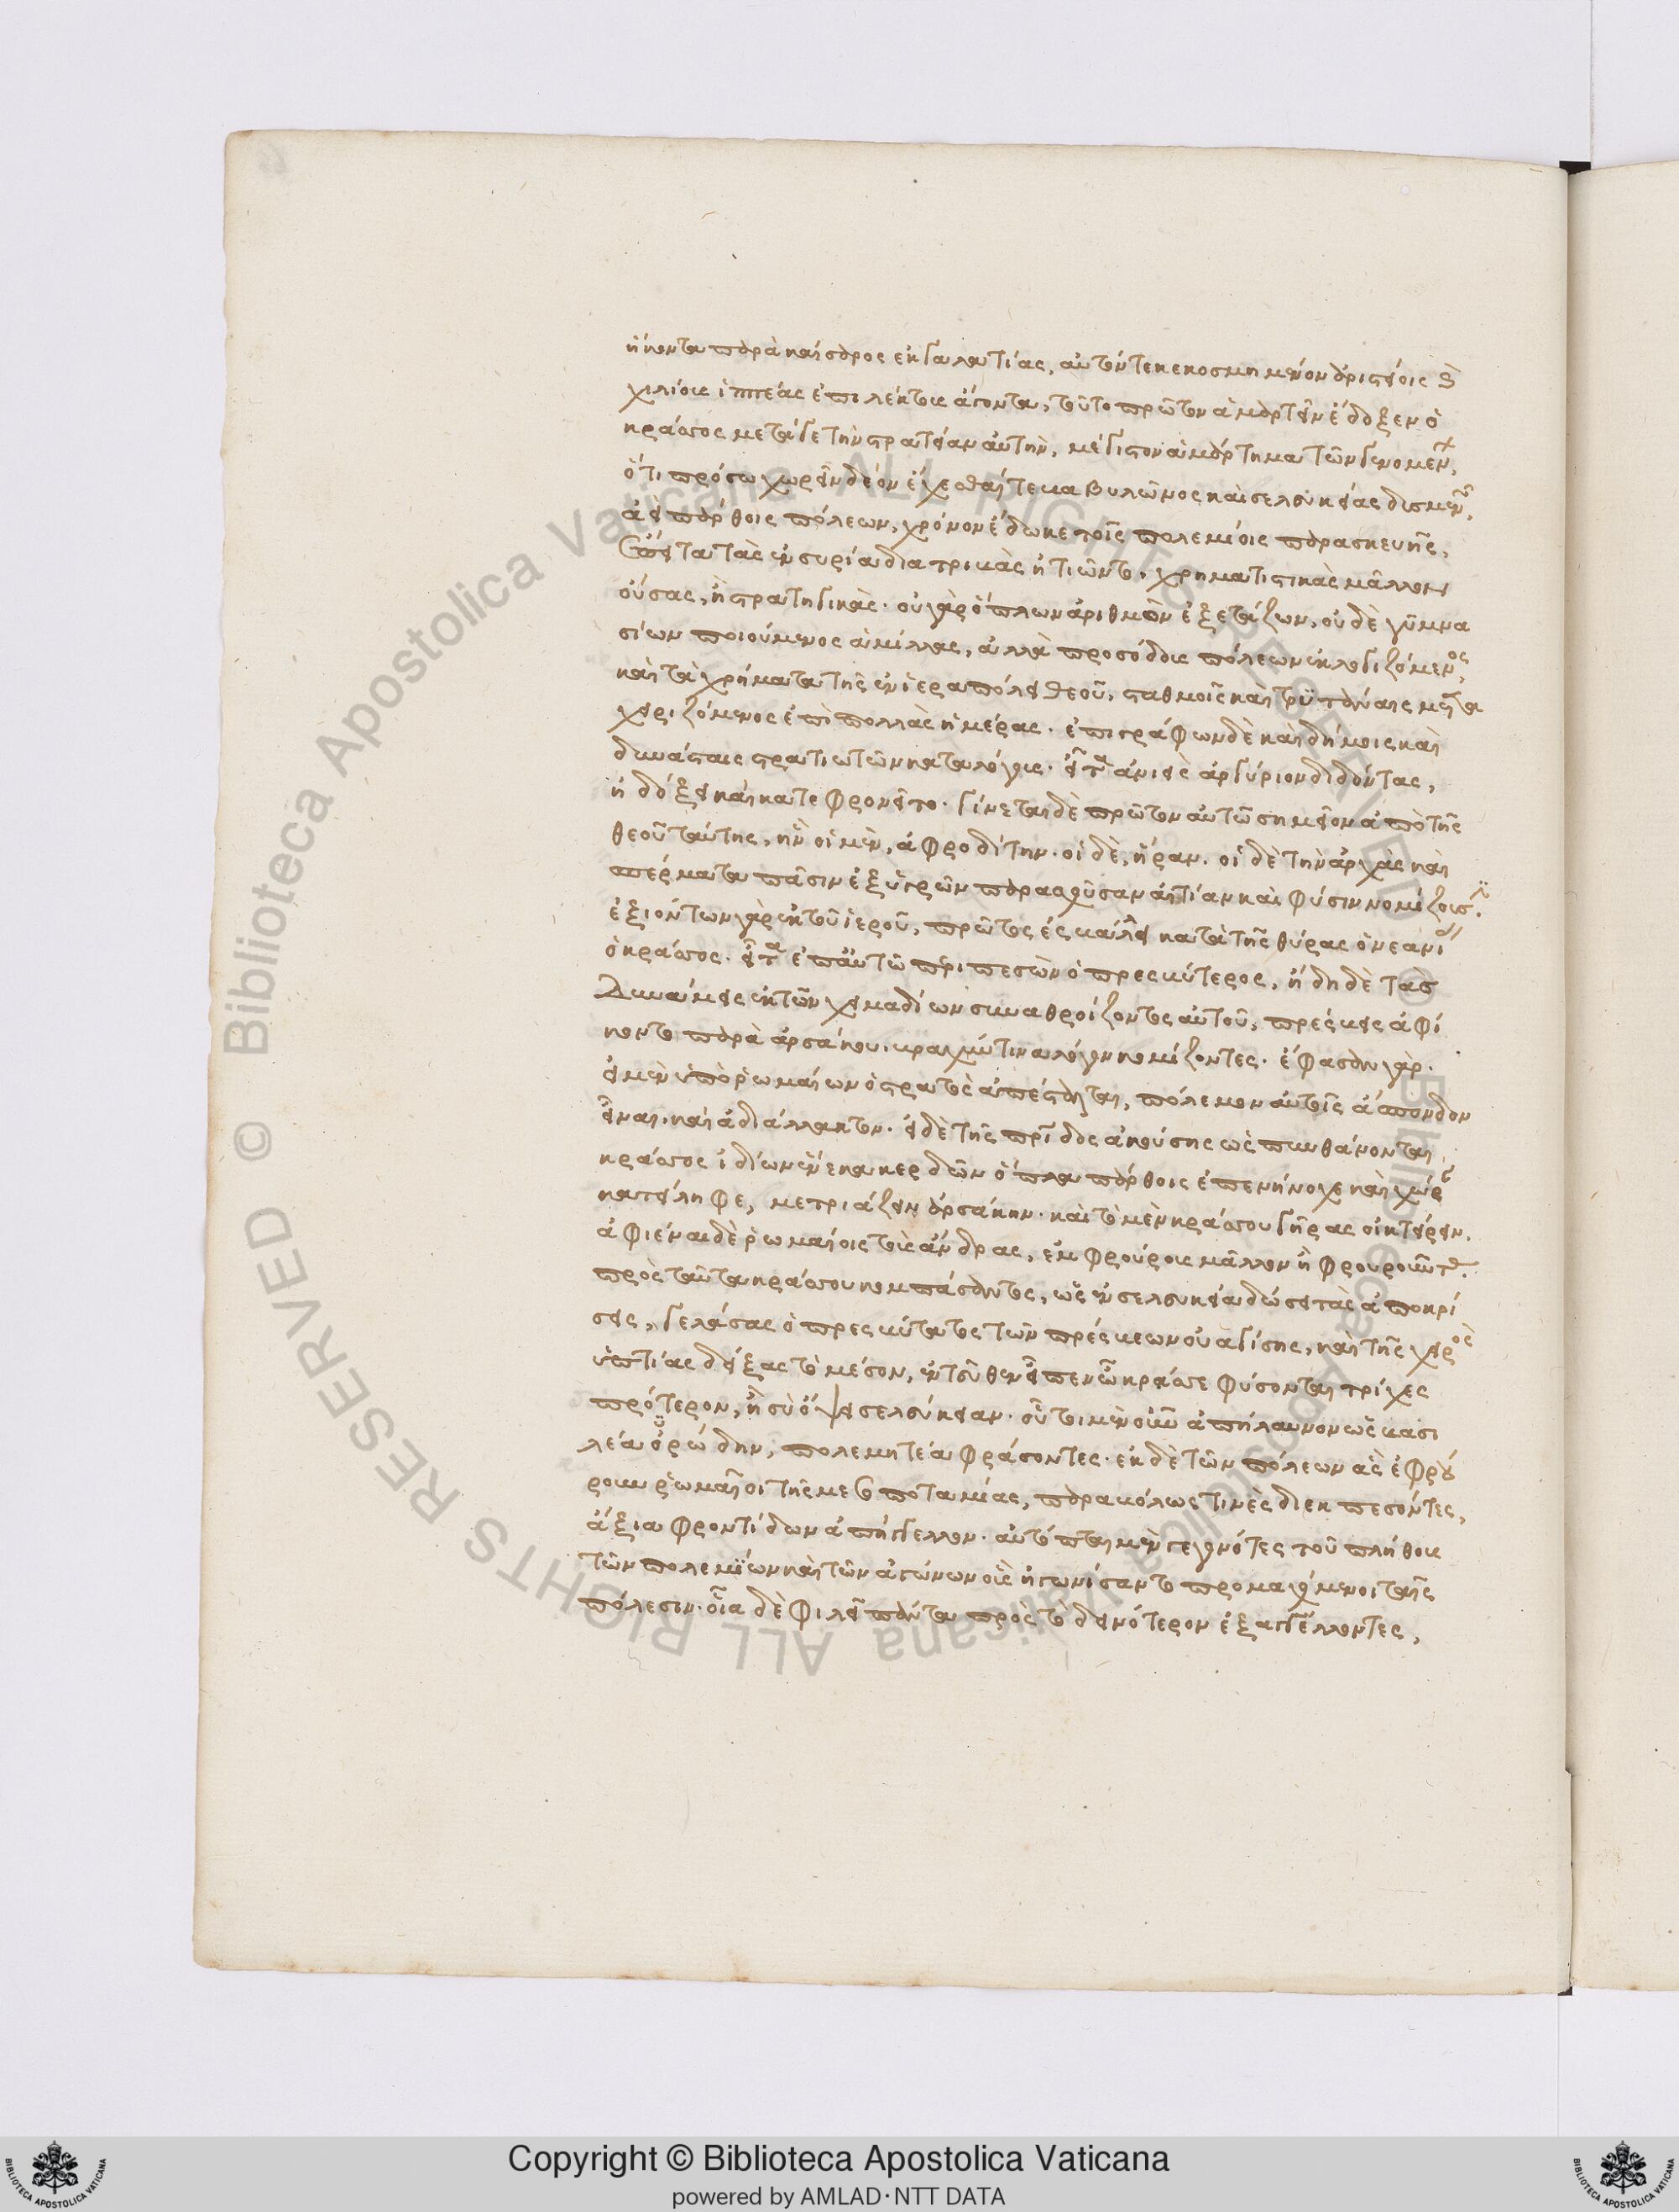 ἥκοντα παρὰ καίσαρος ἐκ γαλατίας, αὐτόν τε κεκοσμημένον ἀριστείοις καὶ
χιλίους ἱππέας ἐπιλέκτους ἄγοντα, τοῦτο πρῶτον ἁμαρτεῖν ἔδοξεν ὁ
κράσσος μετά γε τὴν στρατείαν αὐτὴν, μέγιστον ἁμάρτημα τῶν γενομένων,
ὅτι πρόσω χωρεῖν δέον ἔχεσθαί τε βαβυλῶνος καὶ σελευκείας δυσμενῶν
ἀεὶ πάρθοις πόλεων, χρόνον ἔδωκε τοῖς πολεμίοις παρασκευῆς,
ἔπειτα τὰς ἐν συρία διατριβὰς ἠτιῶντο, χρηματιστικὰς μᾶλλον
οὔσας, ἢ στρατηγικάς· οὐ γὰρ ὅπλων ἀριθμὸν ἐξετάζων, οὐδὲ γυμνα
σίων ποιούμενος ἁμίλλας, ἀλλὰ προσόδους πόλεων ἐκλογιζόμενος,
καὶ τὰ χρήματα τῆς ἐν ἱεραπόλει θεοῦ, σταθμοῖς καὶ τρυτάναις μετα
χειριζόμενος ἐπὶ πολλὰς ἡμέρας· ἐπιγράφων δὲ καὶ δήμοις καὶ
δυνάσταις στρατιωτῶν καταλόγους· εἶτα ἀνιεὶς ἀργύριον διδόντας,
ἠδόξει καὶ κατεφρονεῖτο· γίνεται δὲ πρῶτον αὐτῶ σημεῖον ἀπὸ τῆς
θεοῦ ταύτης, ἣν οἱ μὲν, ἀφροδίτην· οἱ δὲ, ἥραν· οἱ δὲ τὴν ἀρχὰς καὶ
σπέρματα πᾶσιν ἐξ ὑγρῶν παρασχοῦσαν αἰτίαν καὶ φύσιν νομίζουσιν·
ἐξιόντων γὰρ ἐκ τοῦ ἱεροῦ, πρῶτος ἐσφάλη κατὰ τῆς θύρας ὁ νεανίας
ὁ κράσσος· εἶτα ἐπ' αὐτῶ περιπεσὼν ὁ πρεσβύτερος, ἤδη δὲ τὰς
δυνάμεις ἐκ τῶν χειμαδίων συναθροίζοντος αὐτοῦ, πρέσβεις ἀφί
κοντο παρὰ ἀρσάκου βραχύν τινα λόγον κομίζοντες· ἔφασαν γὰρ·
εἰ μὲν ὑπὸ ῥωμαίων ὁ στρατὸς ἀπέσταλται, πόλεμον αὐτοῖς ἄσπονδον
εἶναι· καὶ ἀδιάλλακτον· εἰ δὲ τῆς πατρίδος ἀκούσης ὡς πυνθάνονται
κράσσος ἰδίων ἕνεκα κερδῶν ὅπλα πάρθοις ἐπενήνοχε καὶ χώραν
κατείληφε, μετριάζειν ἀρσάκην· καὶ τὸ μὲν κράσσου γῆρας οἰκτείρειν,
ἀφιέναι δὲ ῥωμαίοις τοὺς ἄνδρας, ἐμφρούρους μᾶλλον ἢ φρουροῦντας
πρὸς ταῦτα κράσσου κομπάσαντος, ὡς ἐν σελευκεία δώσει τὰς ἀποκρί
σεις, γελάσας ὁ πρεσβύτατος τῶν πρέσβεων οὐαγίσης, καὶ τῆς χειρὸς
ὑπτίας δείξας τὸ μέσον, ἐντεῦθεν εἶπεν ὦ κράσσε φύσονται τρίχες
πρότερον, ἢ σὺ ὄψει σελεύκειαν· οὗτοι μὲν οὖν ἀπήλαυνον ὡς βασι
λέα ὑρώδην, πολεμητέα φράσοντες· ἐκ δὲ τῶν πόλεων ἃς ἐφρού
ρουν ῥωμαῖοι τῆς μεσοποταμίας, παραβόλως τινὲς διεκπεσόντες,
ἄξια φροντίδων ἀπήγγελλον· αὐτόπται μὲν γεγονότες τοῦ πλήθους
τῶν πολεμίων καὶ τῶν ἀγώνων οὓς ἠγωνίσαντο προμαχόμενοι ταῖς
πόλεσιν· οἷα δὲ φιλεῖ πάντα πρὸς τὸ δεινότερον ἐξαγγέλλοντες,
Copyright © Biblioteca Apostolica Vaticana
powered by AMLAD·NTT DATA
© Biblioteca Apostolica Vaticana ALL RIGHTS RESERVED © Biblioteca Apostolica Vaticana ALL RIGHTS RESERVED
BIBLIOTECA APOSTOLICA VATICANA
BIBLIOTECA APOSTOLICA VATICANA